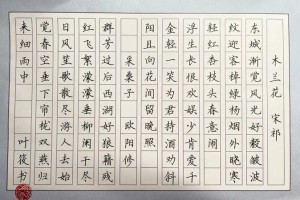 木兰花 宋祁
东城渐觉风光好縠皱波
纹迎客棹绿杨烟外晓寒
轻红杏枝头春意闹
浮生长恨欢娱少肯爱千
金轻一笑为君持酒劝斜
阳且向花间留晚照
采桑子 欧阳修
群芳过后西湖好狼籍残
红飞絮濛濛垂柳阑干尽
日风笙歌散尽游人去始
觉春空垂下帘栊双燕归
来细雨中 叶筱书